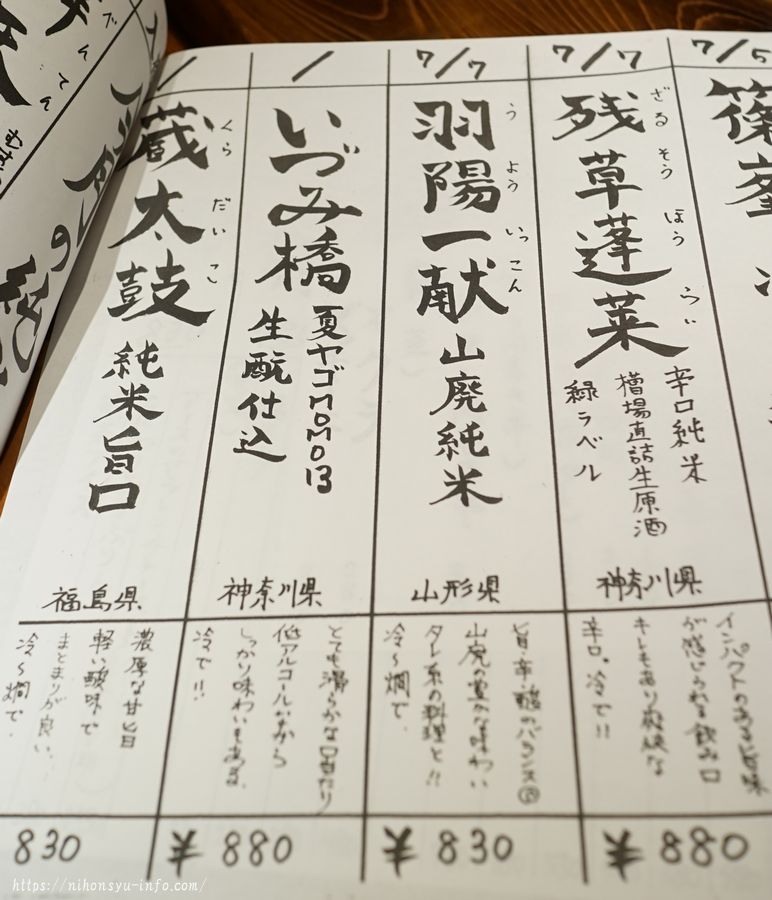 7/5
篠峯
7/7
残草蓬莱
ざるそうほうらい
辛口純米
槽場直詰生原酒
緑ラベル
神奈川県
インパクトのある旨味
が感じられる飲み口
キレもあり爽快な
辛口。冷で!!
¥880
7/7
羽陽一献
うよういっこん
山廃純米
山形県
旨・辛・酸のバランス
山廃の豊かな味わい
タレ系の料理と!!
冷〜燗で。
¥830
/
いづみ橋
夏ヤゴMOMO13
生酛仕込
神奈川県
とても滑らかな口当たり
低アルコールながら
しっかり味わいもある。
冷で!!
¥880
/
蔵太鼓
くらだいこ
純米旨口
福島県
濃厚な甘旨
軽い酸味で
まとまりが良い。
冷〜燗で。
830
https://nihonsyu-info.com/